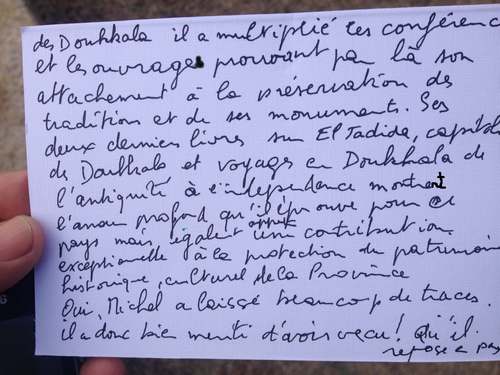 des Doukkala il a multiplié les conférenc
et les ouvrages prouvant par là son
attachement à la préservation des
traditions et de ses monuments. Ses
deux derniers livres sur El Jadida, capitale
des Doukkala et voyages en Doukkala de
l'antiquité à l'indépendance montrent
l'amour profond qu'il éprouve pour ce
pays mais également une contribution
exceptionnelle à la protection du patrimoine
historique, culturel de la Province
Oui, Michel a laissé beaucoup de traces.
il a donc bien mérité d'avoir vécu! Qu'il
repose